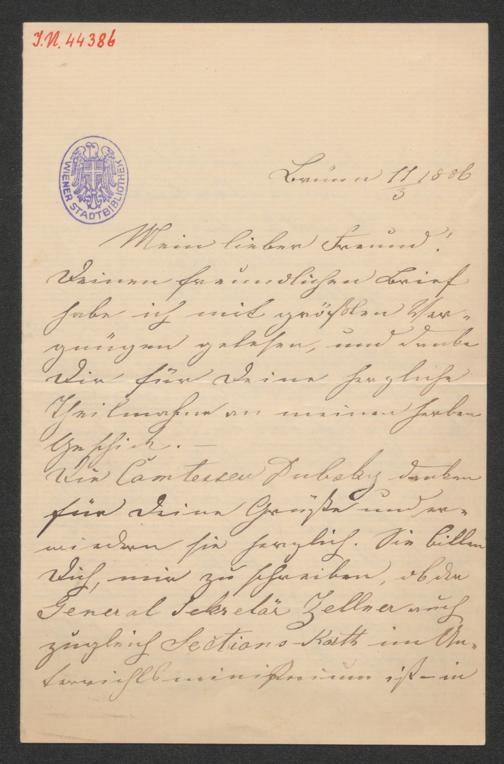 I.N. 44386
WIENER STADTBIBLIOTHEK
Brünn 11/3 1886
Mein lieber Freund!
Deinen freundlichen Brief
habe ich mit größten Ver-
gnügen gelesen, und danke
Dir für Deine herzliche
Theilnahme an meinem herben
Geschick. —
Die Comtessen Dubsky danken
für Deine Grüße und er-
wiedern sie herzlich. Sie bitten
Dich, mir zu schreiben, ob der
General Sekretär Zellner auch
zugleich Sections-Rath im Un-
terrichtsministerium ist – in